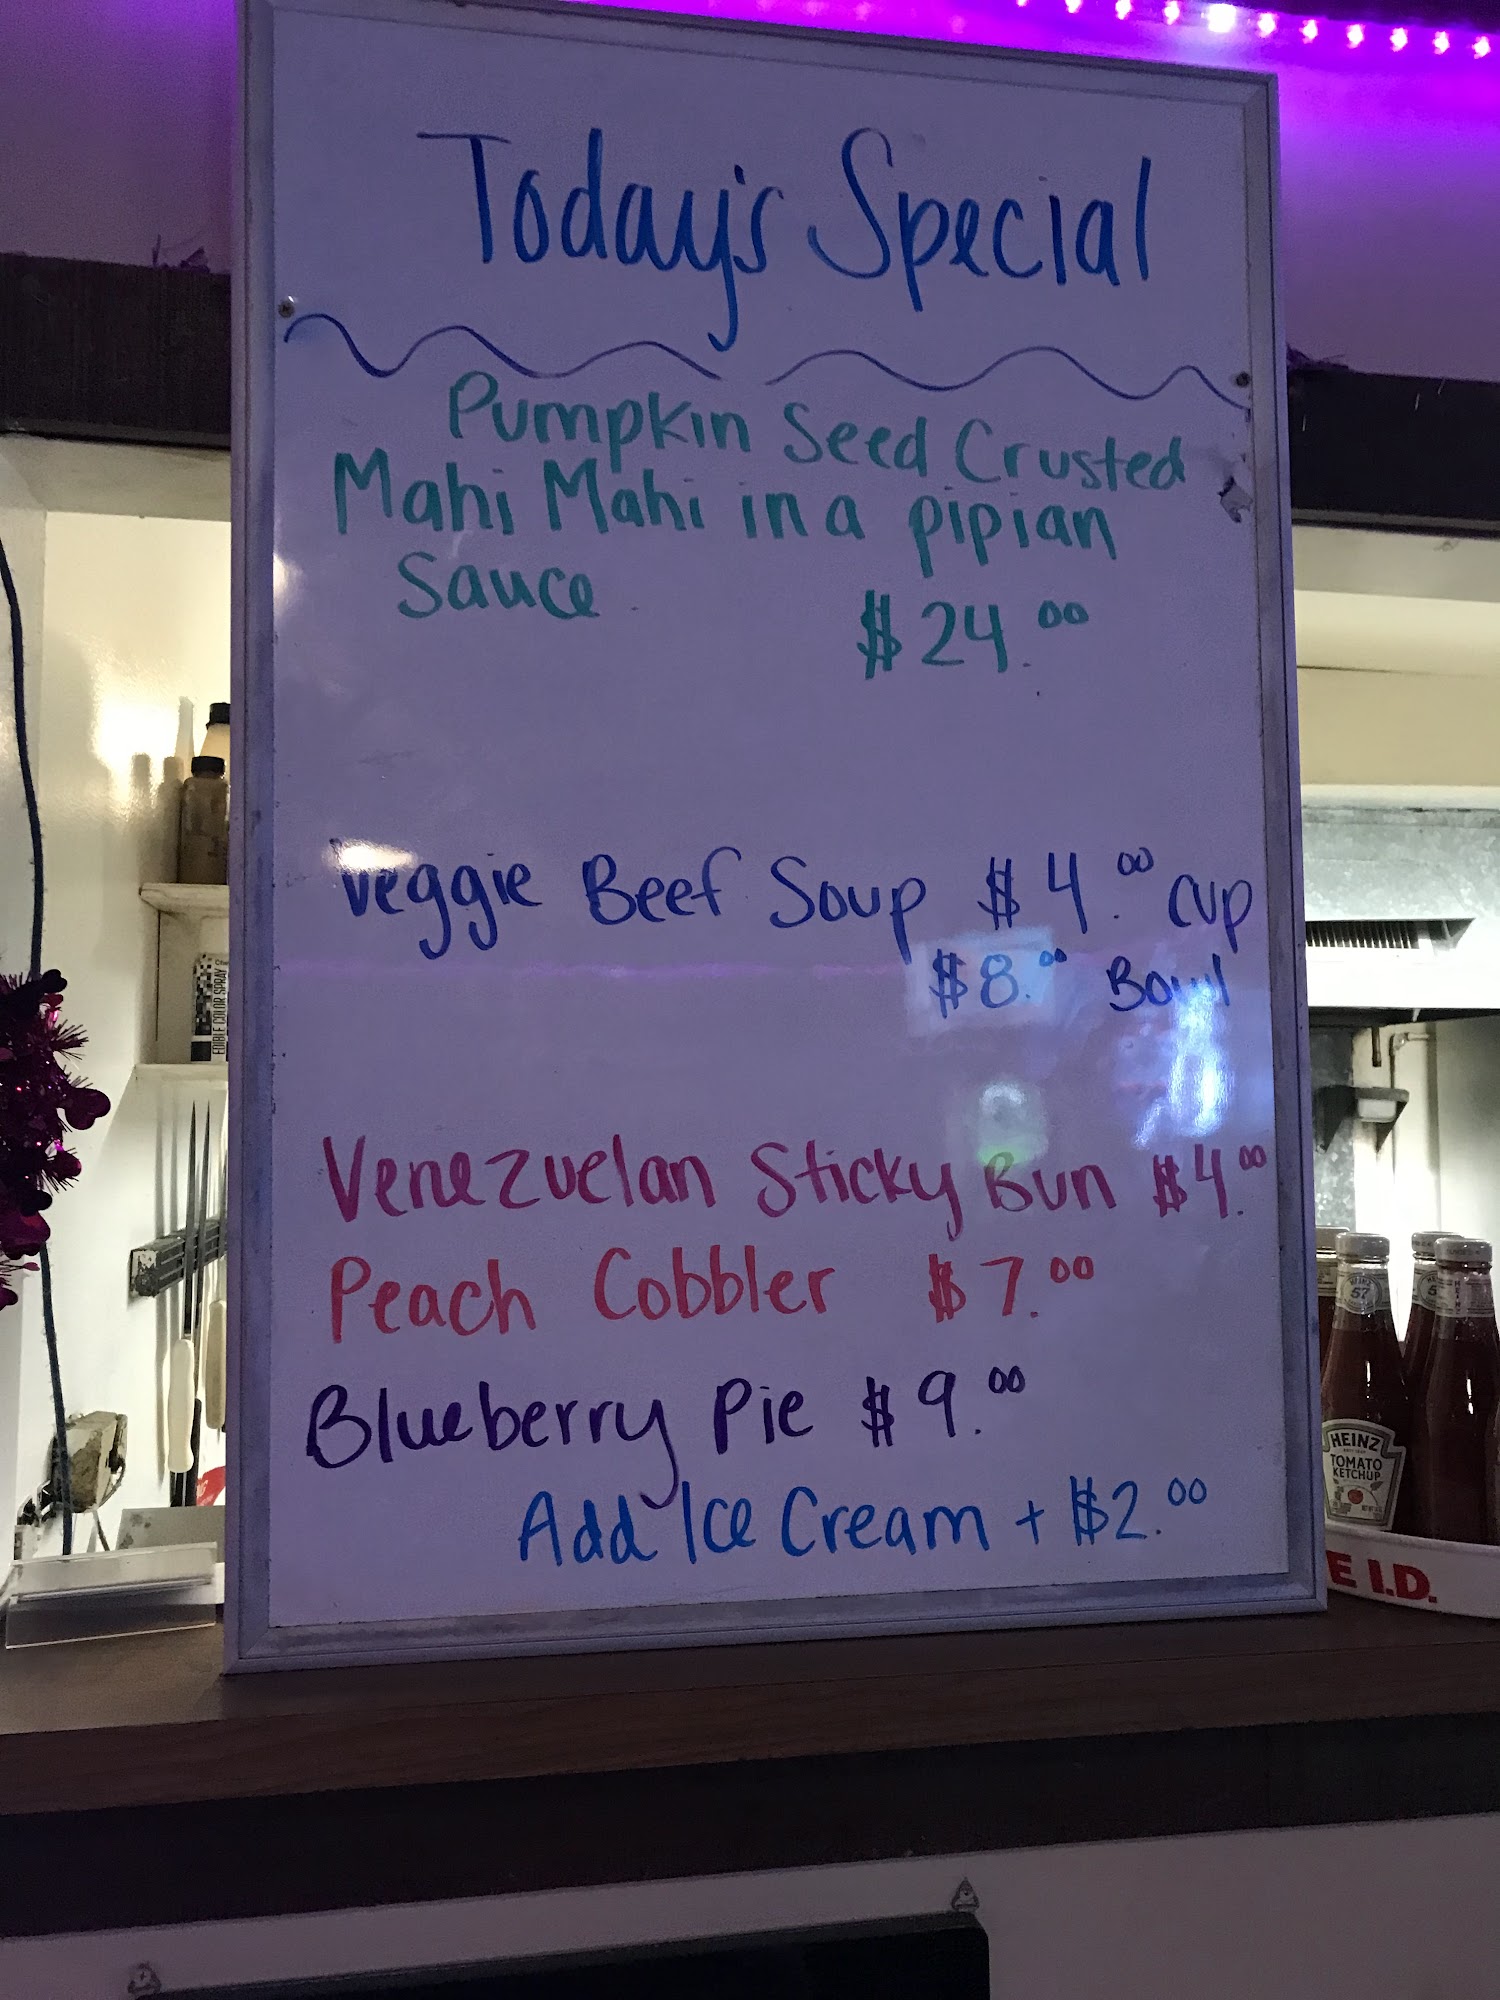 Today's Special
Pumpkin Seed Crusted
Mahi Mahi in a pipian
Sauce $24.00
Veggie Beef Soup $4.00 cup
$8.00 Bowl
Venezuelan Sticky Bun $4.00
Peach Cobbler $7.00
Blueberry Pie $9.00
Add Ice Cream + $2.00
EDIBLE COLOR SPRAY
57
HEINZ
TOMATO
KETCHUP
E I.D.